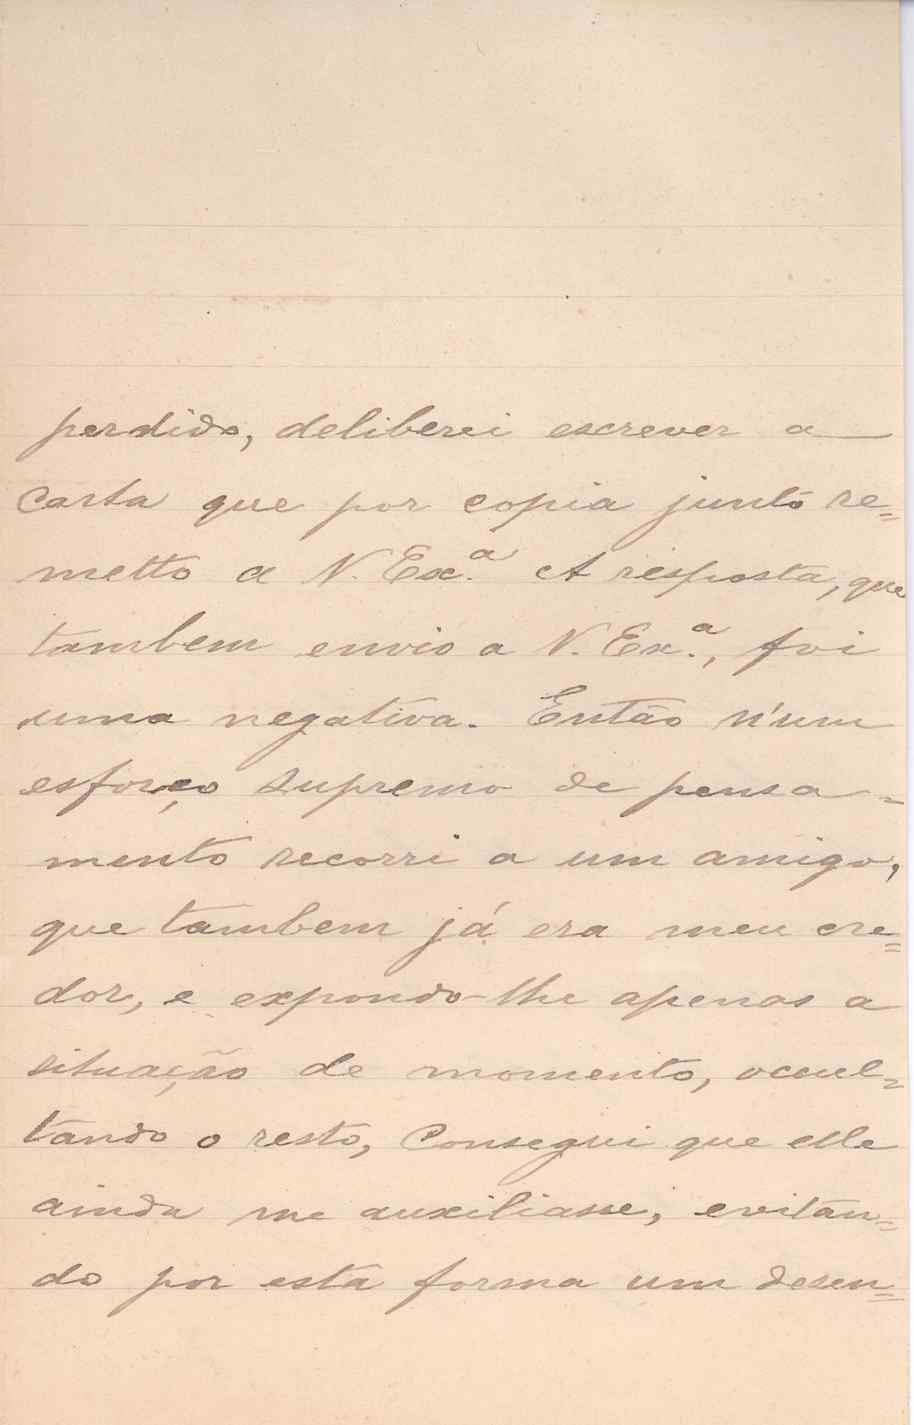 perdido, deliberei escrever a
carta que por copia junto re=
metto a V. Ex.ª A resposta, que
tambem envio a V. Ex.ª, foi
uma negativa. Então n'um
esforço supremo de pensa-
mento recorri a um amigo,
que tambem já era meu cre=
dor, e expondo-lhe apenas a
situação de momento, occul=
tando o resto, consegui que elle
ainda me auxiliasse, evitan=
do por esta forma um desen=